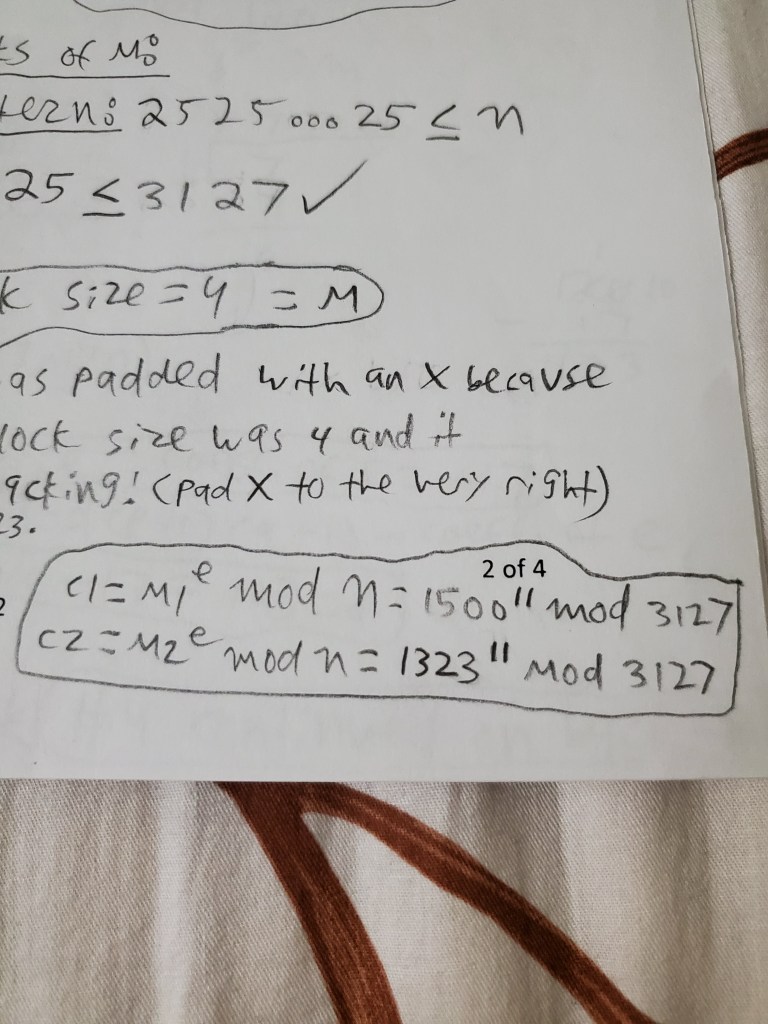 ts of M:
tern: 2525...25 ≤ n
25 ≤ 3127 ✓
k size = 4 = M
as padded with an X because
lock size was 4 and it
acking! (pad X to the very right)
23.
2 of 4
C1 = M₁ᵉ mod n = 1500¹¹ mod 3127
C2 = M2ᵉ mod n = 1323¹¹ mod 3127